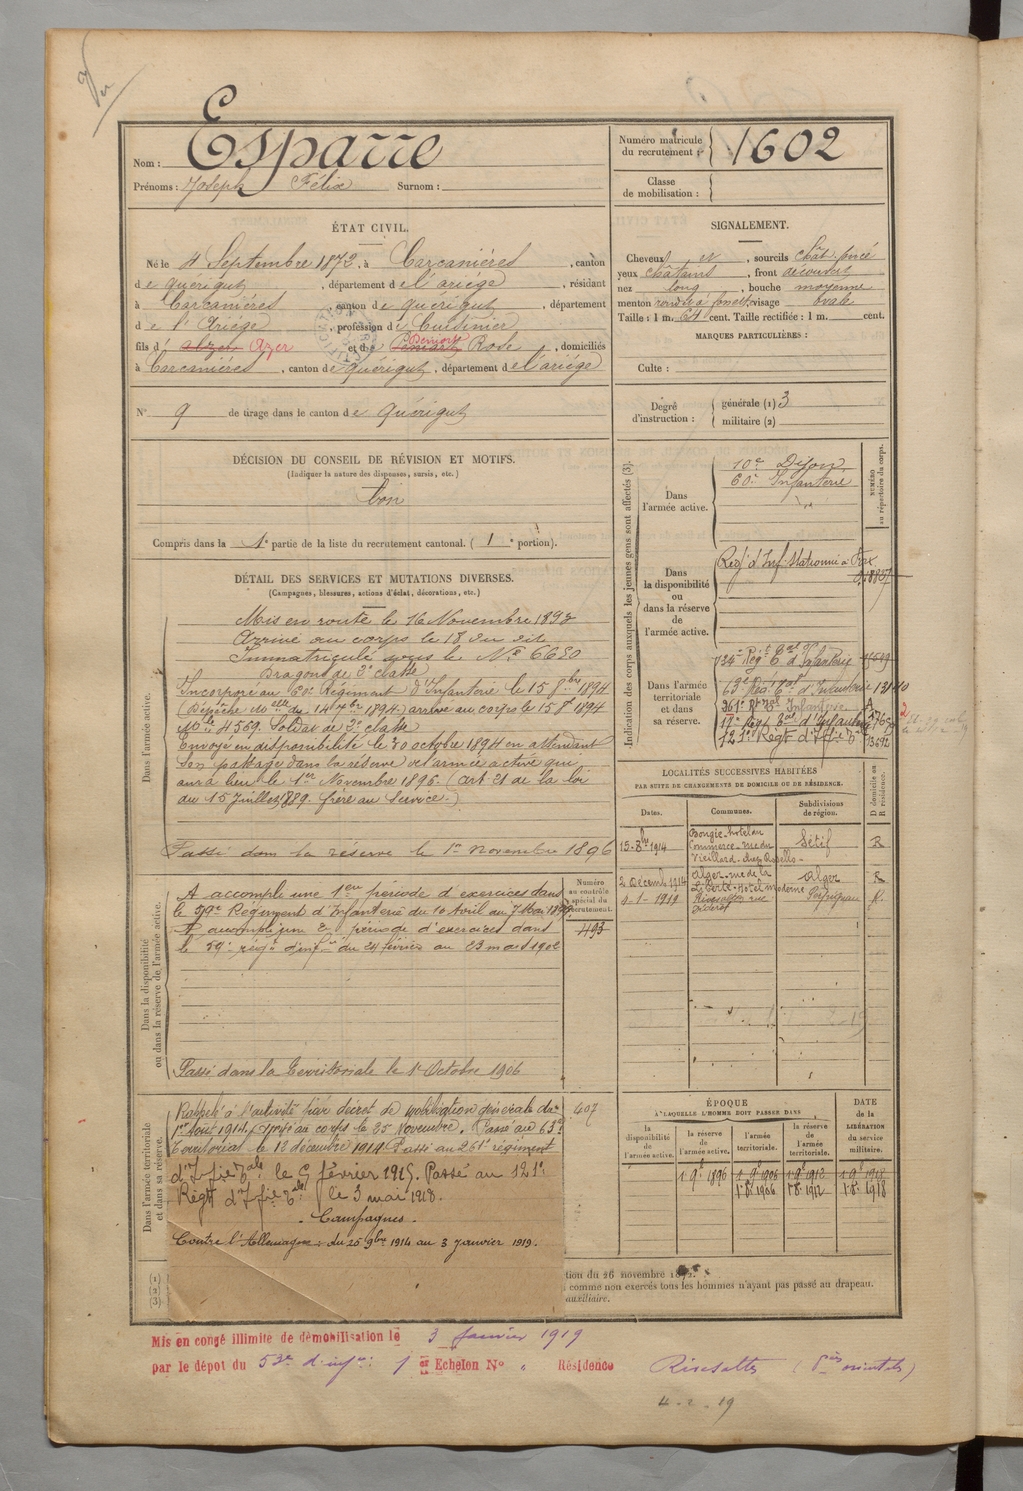 Vu
Nom : Esparre
Prénoms : Joseph Félix Surnom :
Numéro matricule du recrutement : 1602
Classe de mobilisation :
ÉTAT CIVIL.
Né le 4 Septembre 1872, à Carcanières, canton
de Quérigut, département de l'ariège, résidant
à Carcanières, canton de Querigut, département
de l'Ariège, profession de Cuisinier
fils d' Azer et de Rose, domiciliés
à Carcanières, canton de Quérigut, département de l'ariége
N° 9 de tirage dans le canton de Quérigut
SIGNALEMENT.
Cheveux N, sourcils chât. foncé
yeux châtains, front découvert
nez long, bouche moyenne
menton rond, visage ovale
Taille : 1 m. 64 cent. Taille rectifiée : 1 m. cent.
MARQUES PARTICULIÈRES :
Culte :
Degré d'instruction : générale (1) 3
militaire (2)
DÉCISION DU CONSEIL DE RÉVISION ET MOTIFS.
(Indiquer la nature des dispenses, sursis, etc.)
bon
Compris dans la 1e partie de la liste du recrutement cantonal. ( 1 e portion).
DÉTAIL DES SERVICES ET MUTATIONS DIVERSES.
(Campagnes, blessures, actions d'éclat, décorations, etc.)
Dans l'armée active.
Mis en route le 16 Novembre 1893
Arrivé au corps le 18 du dit
Immatriculé sous le N° 6650
Dragons de 2e classe
Incorporé au 60e Régiment d'Infanterie le 15 8bre 1894
arrivé au corps le 15 8bre 1894
Mle 4569. Soldat de 2e classe
Envoyé en disponibilité le 20 octobre 1894 en attendant
son passage dans la réserve de l'armée active qui
aura lieu le 1er Novembre 1896. (art 21 de la loi
du 15 juillet 1889. frère au service.)
Passé dans la réserve le 1er Novembre 1896
Dans la disponibilité ou dans la réserve de l'armée active.
A accompli une 1ere période d'exercices dans
le 59e Régiment d'Infanterie du 10 Avril au 7 Mai
A accompli une 2e période d'exercices dans
le 59e régt d'inf du 24 février au 23 mars 1902
Passé dans la Territoriale le 1er Octobre 1906
Numéro au contrôle spécial du recrutement.
493
Dans l'armée territoriale et dans sa réserve.
Rappelé à l'activité par décret de mobilisation générale du
1er Aout 1914, arrivé au corps le 25 Novembre. Passé au 63e
Territorial le 12 décembre 1914. Passé au 261e régiment
d'Ifie Tale le 9 février 1915. Passé au 121e
Régt d'Ifie Tale le 3 mai 1918.
Campagnes.
Contre l'Allemagne : du 25 9bre 1914 au 3 Janvier 1919.
407
Indication des corps auxquels les jeunes gens sont affectés (3).
NUMÉRO au répertoire du corps.
Dans l'armée active.
10e Dragons
60e Infanterie
Dans la disponibilité ou dans la réserve de l'armée active.
Régt d'Inf. stationné à Foix
Dans l'armée territoriale et dans sa réserve.
Régt Tal d'Infanterie
63e Rég. Tal d'Infanterie
261e Rt Tal Infanterie
17e Régt Tal d'Infanterie
121e Régt d'Ifie Tle
LOCALITÉS SUCCESSIVES HABITÉES
PAR SUITE DE CHANGEMENTS DE DOMICILE OU DE RÉSIDENCE.
Dates. Communes. Subdivisions de région. D domicile ou R résidence.
15-8bre 1914 Bougie - hotel du Commerce - rue du Vieillard - chez Sétif R
2 Décemb 1914 Alger - rue de la Liberté - Hotel moderne Alger R
3-1-1919 Rivesaltes rue Diderot Perpignan R.
ÉPOQUE
À LAQUELLE L'HOMME DOIT PASSER DANS
la disponibilité de l'armée active. la réserve de l'armée active. l'armée territoriale. la réserve de l'armée territoriale. DATE de la LIBÉRATION du service militaire.
1 9e 1896 1 9e 1906 1 9e 1912 1 9e 1918
1er 8e 1906 1er 8e 1912 1er 8e 1918
(1)
(2)
(3)
tion du 26 novembre
comme non exercés tous les hommes n'ayant pas passé au drapeau.
auxiliaire.
Mis en congé illimité de démobilisation le 3 Janvier 1919
par le dépot du 53e d'infie 1er Echelon N° " Résidence Rivesaltes (Pées orientales)
4-2-19